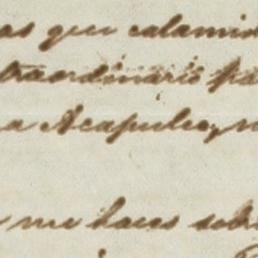 as que calami
traordinario pa
a Acapulco, n
me haces sobr